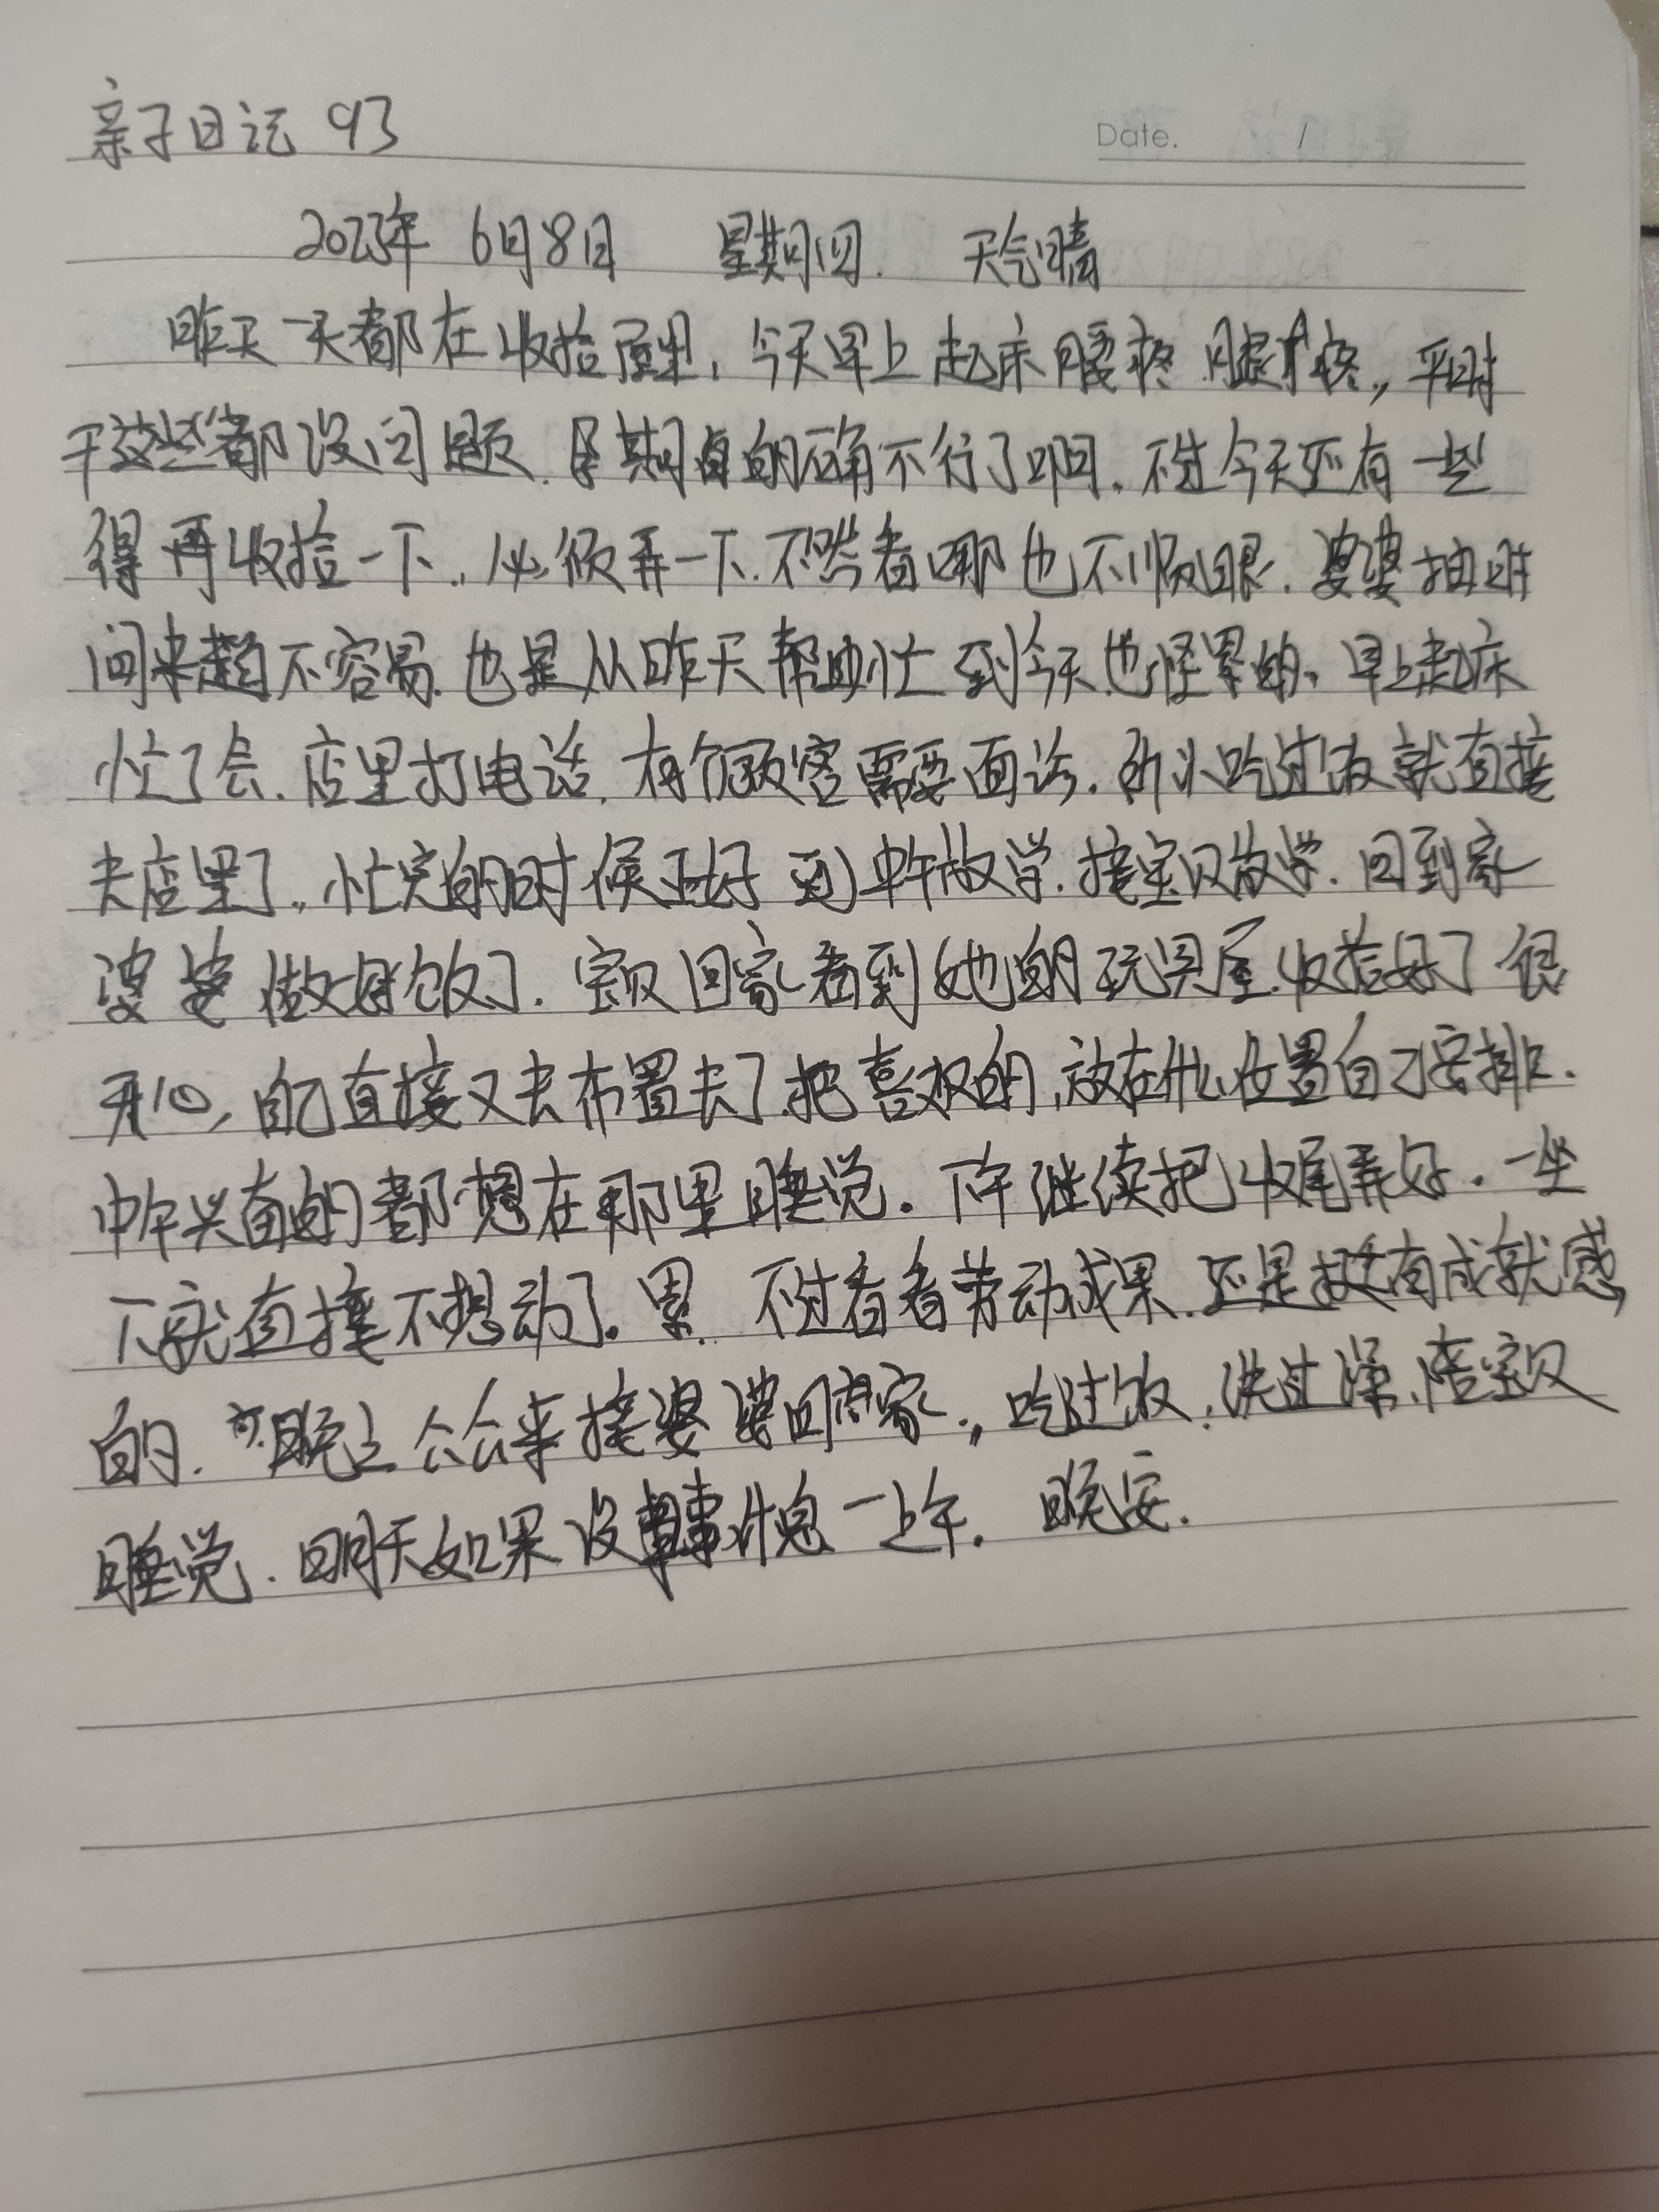 亲子日记 93
Date. /
2023年 6月8日 星期四. 天气晴
昨天一天都在收拾屋里,今天早上起床腰疼 腿疼,,平时
干这些都没问题.月期真的确不行了啊.不过今天还有一些
得再收拾一下.,必须弄一下.不然看哪也不顺眼.婆婆抽时
间来趟不容易.也是从昨天帮助忙到今天也怪累的、早上起床
忙了会.店里打电话.有个顾客需要面访.所以吃过饭就直接
去店里了.,忙完的时候正好到中午放学.接宝贝放学.回到家
婆婆做好饭了.宝贝回家看到她的玩具屋收拾好了很
开心,自己直接又去布置去了.把喜欢的,放在什么位置自己安排.
中午兴奋的都想在那里睡觉.下午继续把收尾弄好.一坐
下就直接不想动了。累.不过看看劳动成果.还是挺有成就感
的. 晚上公公来接婆婆回家.,吃过饭,洗过澡、陪宝贝
睡觉.明天如果没事休息一上午. 晚安.